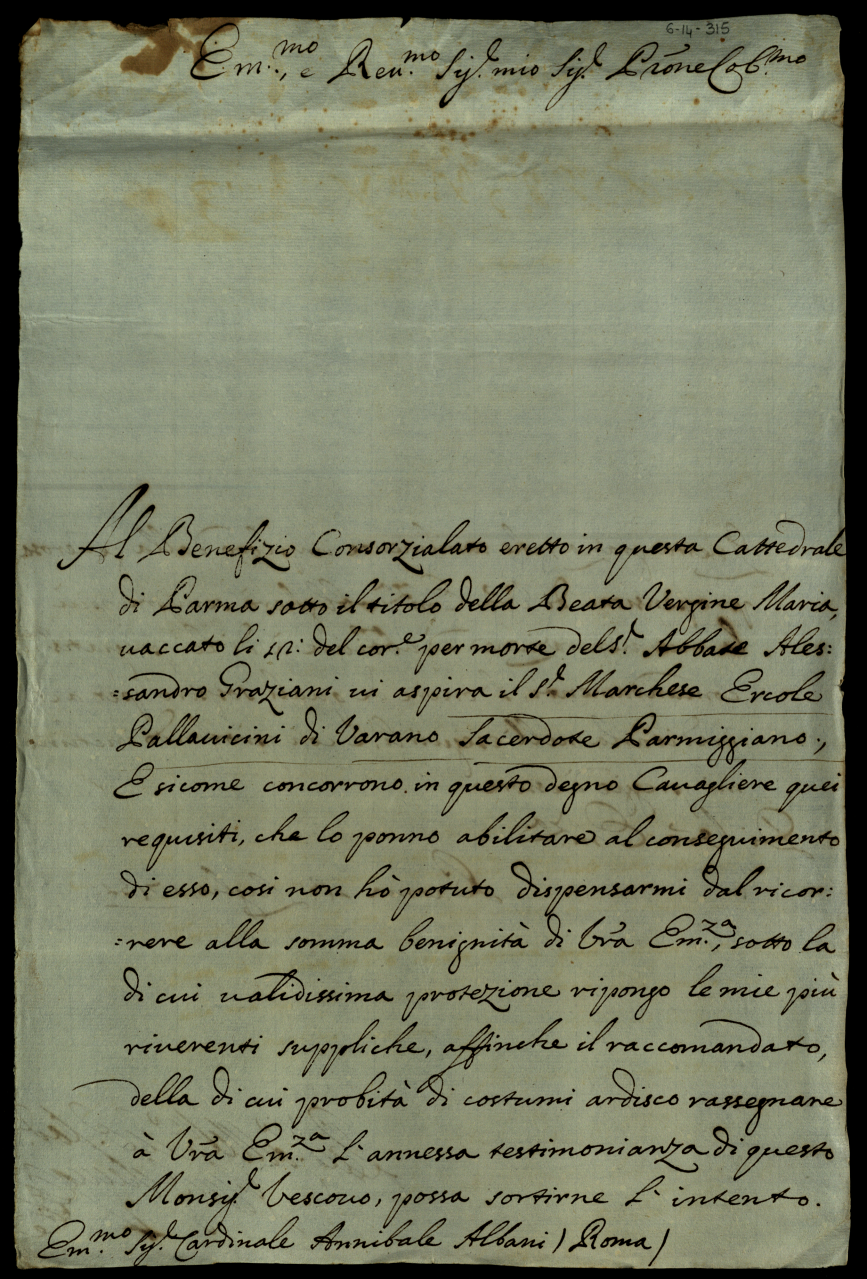 6-14-315
Em.mo, e Reu.mo Sig.r mio Sig.r Pr̃one Col.mo
Al Benefizio Consorzialato eretto in questa Cattedrale
di Parma sotto il titolo della Beata Vergine Maria,
uaccato li 12: del cor.e per morte del S.r Abbate Ales:
:sandro Graziani ui aspira il S.r Marchese Ercole
Pallauicini di Varano Sacerdote Parmiggiano.,
E sicome concorrono in questo degno Cauagliere quei
requisiti, che lo ponno abilitare al conseguimento
di esso, cosi non hò potuto dispensarmi dal ricor:
:rere alla somma benignità di Vr̃a Em.za, sotto la
di cui validissima protezione ripongo le mie più
riuerenti suppliche, affinche il raccomandato,
della di cui probità di costumi ardisco rassegnare
à Vr̃a Em.za l'annessa testimonianza di questo
Monsig.r Vescouo, possa sortirne l'intento.
Em.mo Sig.r Cardinale Annibale Albani ) Roma )